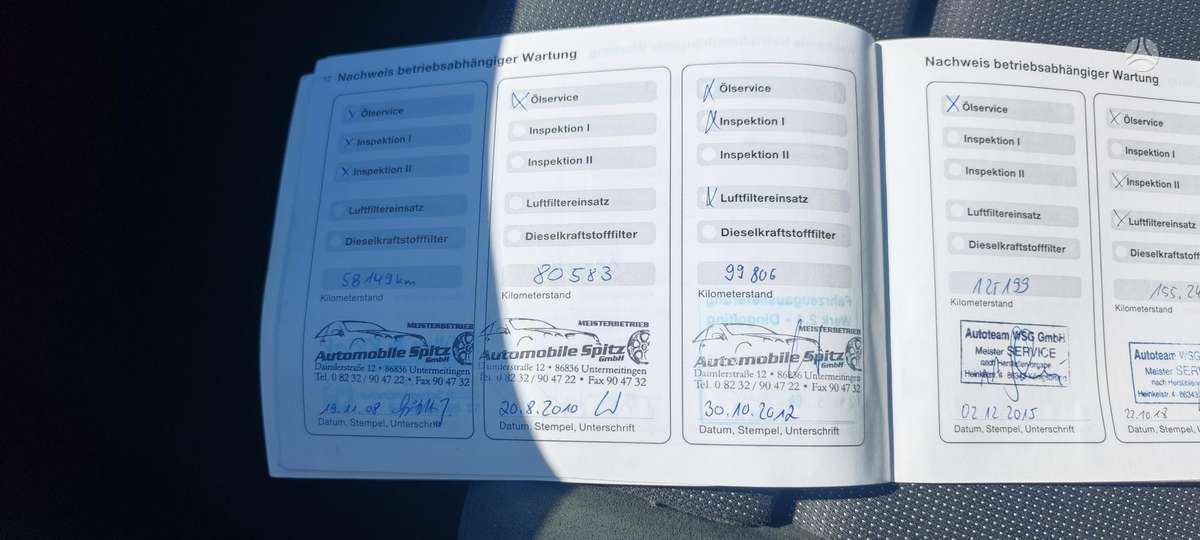 12 Nachweis betriebsabhängiger Wartung
Ölservice
Inspektion I
Inspektion II
Luftfiltereinsatz
Dieselkraftstofffilter
58149 km
Kilometerstand
MEISTERBETRIEB
Automobile Spitz
GmbH
Daimlerstraße 12 • 86836 Untermeitingen
Tel. 0 82 32 / 90 47 22 • Fax 90 47 32
19.11.08
Datum, Stempel, Unterschrift
Ölservice
Inspektion I
Inspektion II
Luftfiltereinsatz
Dieselkraftstofffilter
80583
Kilometerstand
MEISTERBETRIEB
Automobile Spitz
GmbH
Daimlerstraße 12 • 86836 Untermeitingen
Tel. 0 82 32 / 90 47 22 • Fax 90 47 32
20.8.2010
Datum, Stempel, Unterschrift
Ölservice
Inspektion I
Inspektion II
Luftfiltereinsatz
Dieselkraftstofffilter
99806
Kilometerstand
MEISTERBETRIEB
Automobile Spitz
GmbH
Daimlerstraße 12 • 86836 Untermeitingen
Tel. 0 82 32 / 90 47 22 • Fax 90 47 32
30.10.2012
Datum, Stempel, Unterschrift
Nachweis betriebsabhängiger Wartung
Ölservice
Inspektion I
Inspektion II
Luftfiltereinsatz
Dieselkraftstofffilter
125199
Kilometerstand
Autoteam WSG GmbH
Meister SERVICE
nach Herstellervorgabe
Heinkelstr. 4
02.12.2015
Datum, Stempel, Unterschrift
Ölservice
Inspektion I
Inspektion II
Luftfiltereinsatz
Dieselkraftstofff
155.24
Kilometerstand
Autoteam WSG
Meister SER
nach Herstelle
Heinkelstr. 4 · 86343
22.10.18
Datum, Stempel, Unte